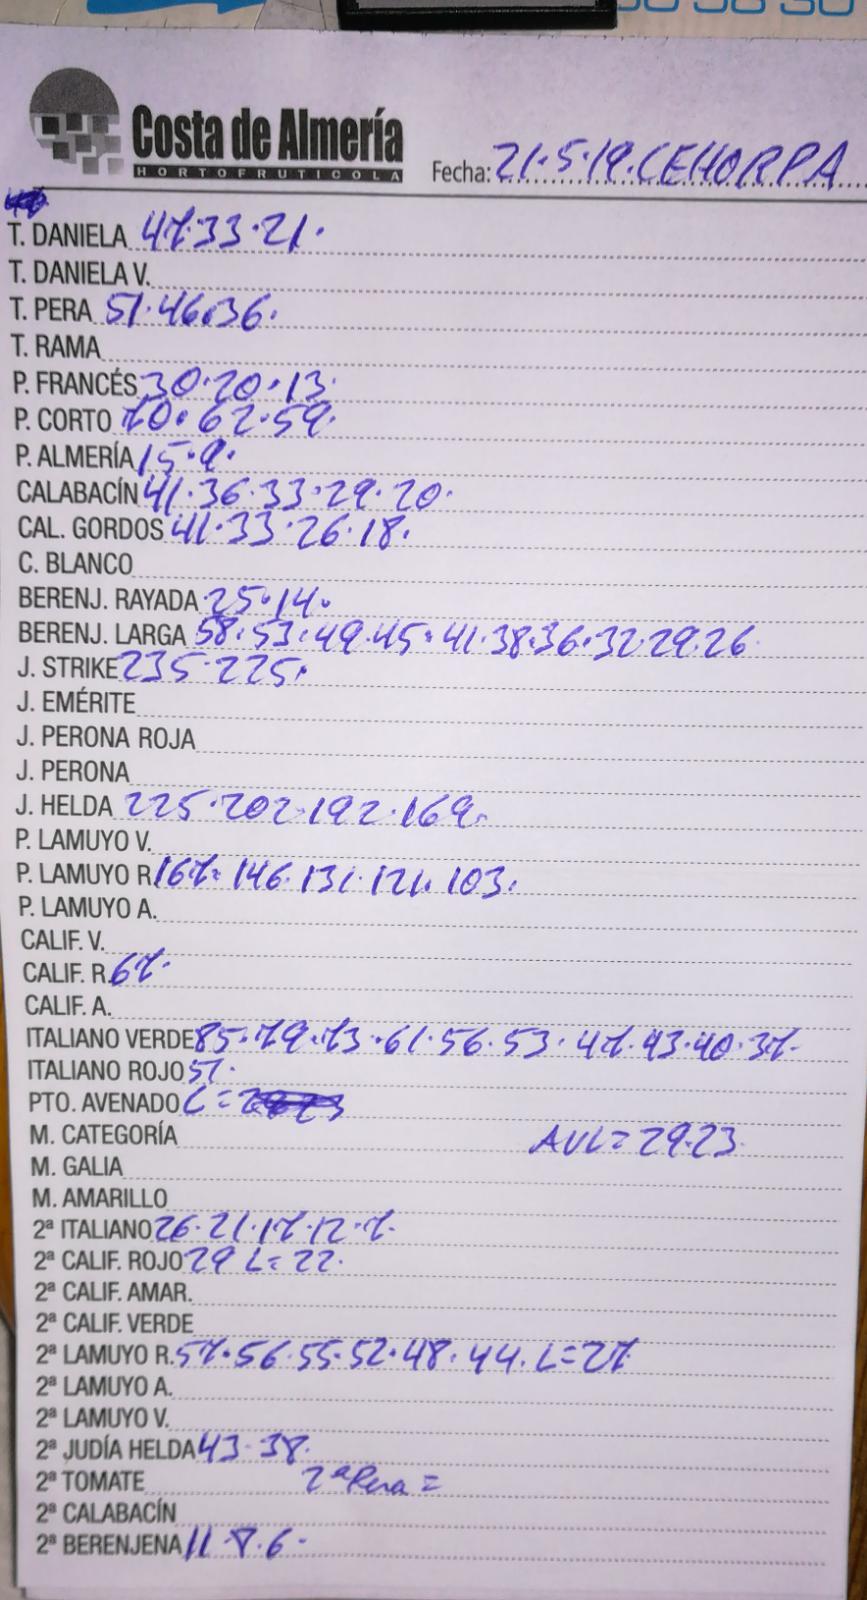 Costa de Almería
HORTOFRUTICOLA
Fecha: 21.5.19. CEHORPA
T. DANIELA 47.33.21.
T. DANIELA V.
T. PERA 51.46.36.
T. RAMA
P. FRANCÉS 30.20.13.
P. CORTO 70.62.59.
P. ALMERÍA 15.9.
CALABACÍN 41.36.33.29.20.
CAL. GORDOS 41.33.26.18.
C. BLANCO
BERENJ. RAYADA 25.14.
BERENJ. LARGA 58.53.49.45.41.38.36.32.29.26
J. STRIKE 235.225.
J. EMÉRITE
J. PERONA ROJA
J. PERONA
J. HELDA 225.202.192.169.
P. LAMUYO V.
P. LAMUYO R. 167.146.131.121.103.
P. LAMUYO A.
CALIF. V.
CALIF. R. 67.
CALIF. A.
ITALIANO VERDE 85.79.73.61.56.53.47.43.40.37.
ITALIANO ROJO 57.
PTO. AVENADO L=
M. CATEGORÍA AVL=29.23.
M. GALIA
M. AMARILLO
2ª ITALIANO 26.21.17.12.7.
2ª CALIF. ROJO 29 L=22.
2ª CALIF. AMAR.
2ª CALIF. VERDE
2ª LAMUYO R. 57.56.55.52.48.44. L=27.
2ª LAMUYO A.
2ª LAMUYO V.
2ª JUDÍA HELDA 43.38.
2ª TOMATE 2ª Pera =
2ª CALABACÍN
2ª BERENJENA 11.8.6.